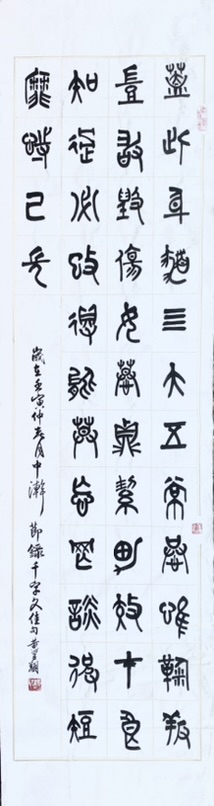 蓋此身髮四大五常恭惟鞠養
豈敢毀傷女慕貞絜男效才良
知過必改得能莫忘罔談彼短
靡恃己長
歲在壬寅仲春月中澣 節錄千字文佳句